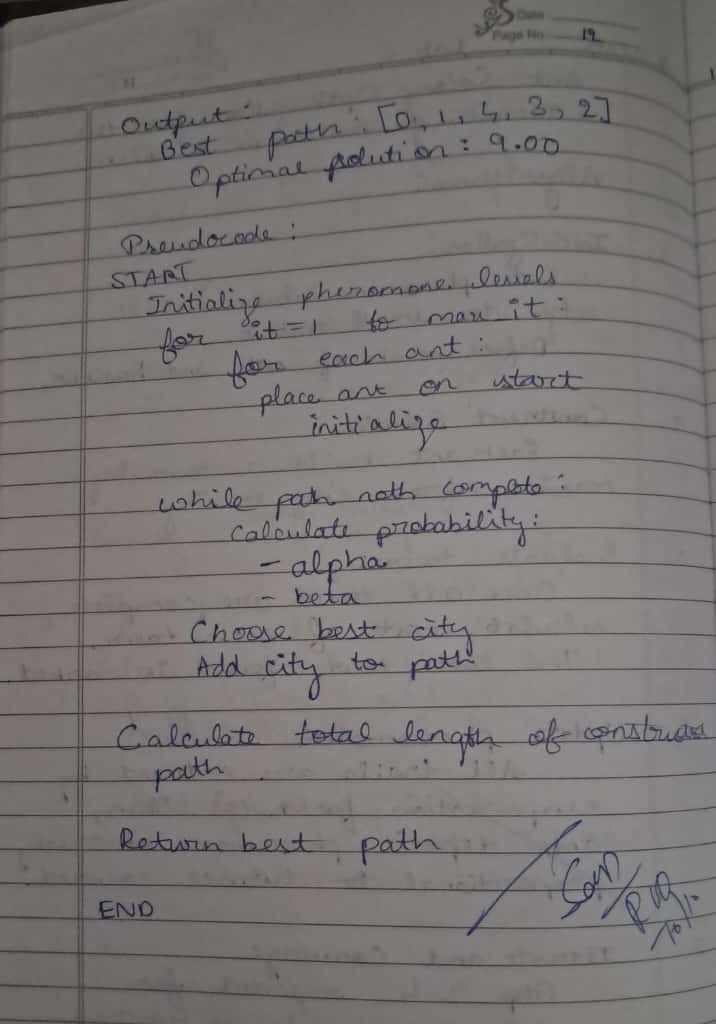 Date
Page No 12
Output :
Best path : [0, 1, 4, 3, 2]
Optimal solution : 9.00
Pseudocode :
START
Initialize pheromone levels
for it=1 to max it :
for each ant :
place ant on start
initialize
while path noth complete :
Calculate probability :
- alpha
- beta
Choose best city
Add city to path
Calculate total length of
path
Return best path
END